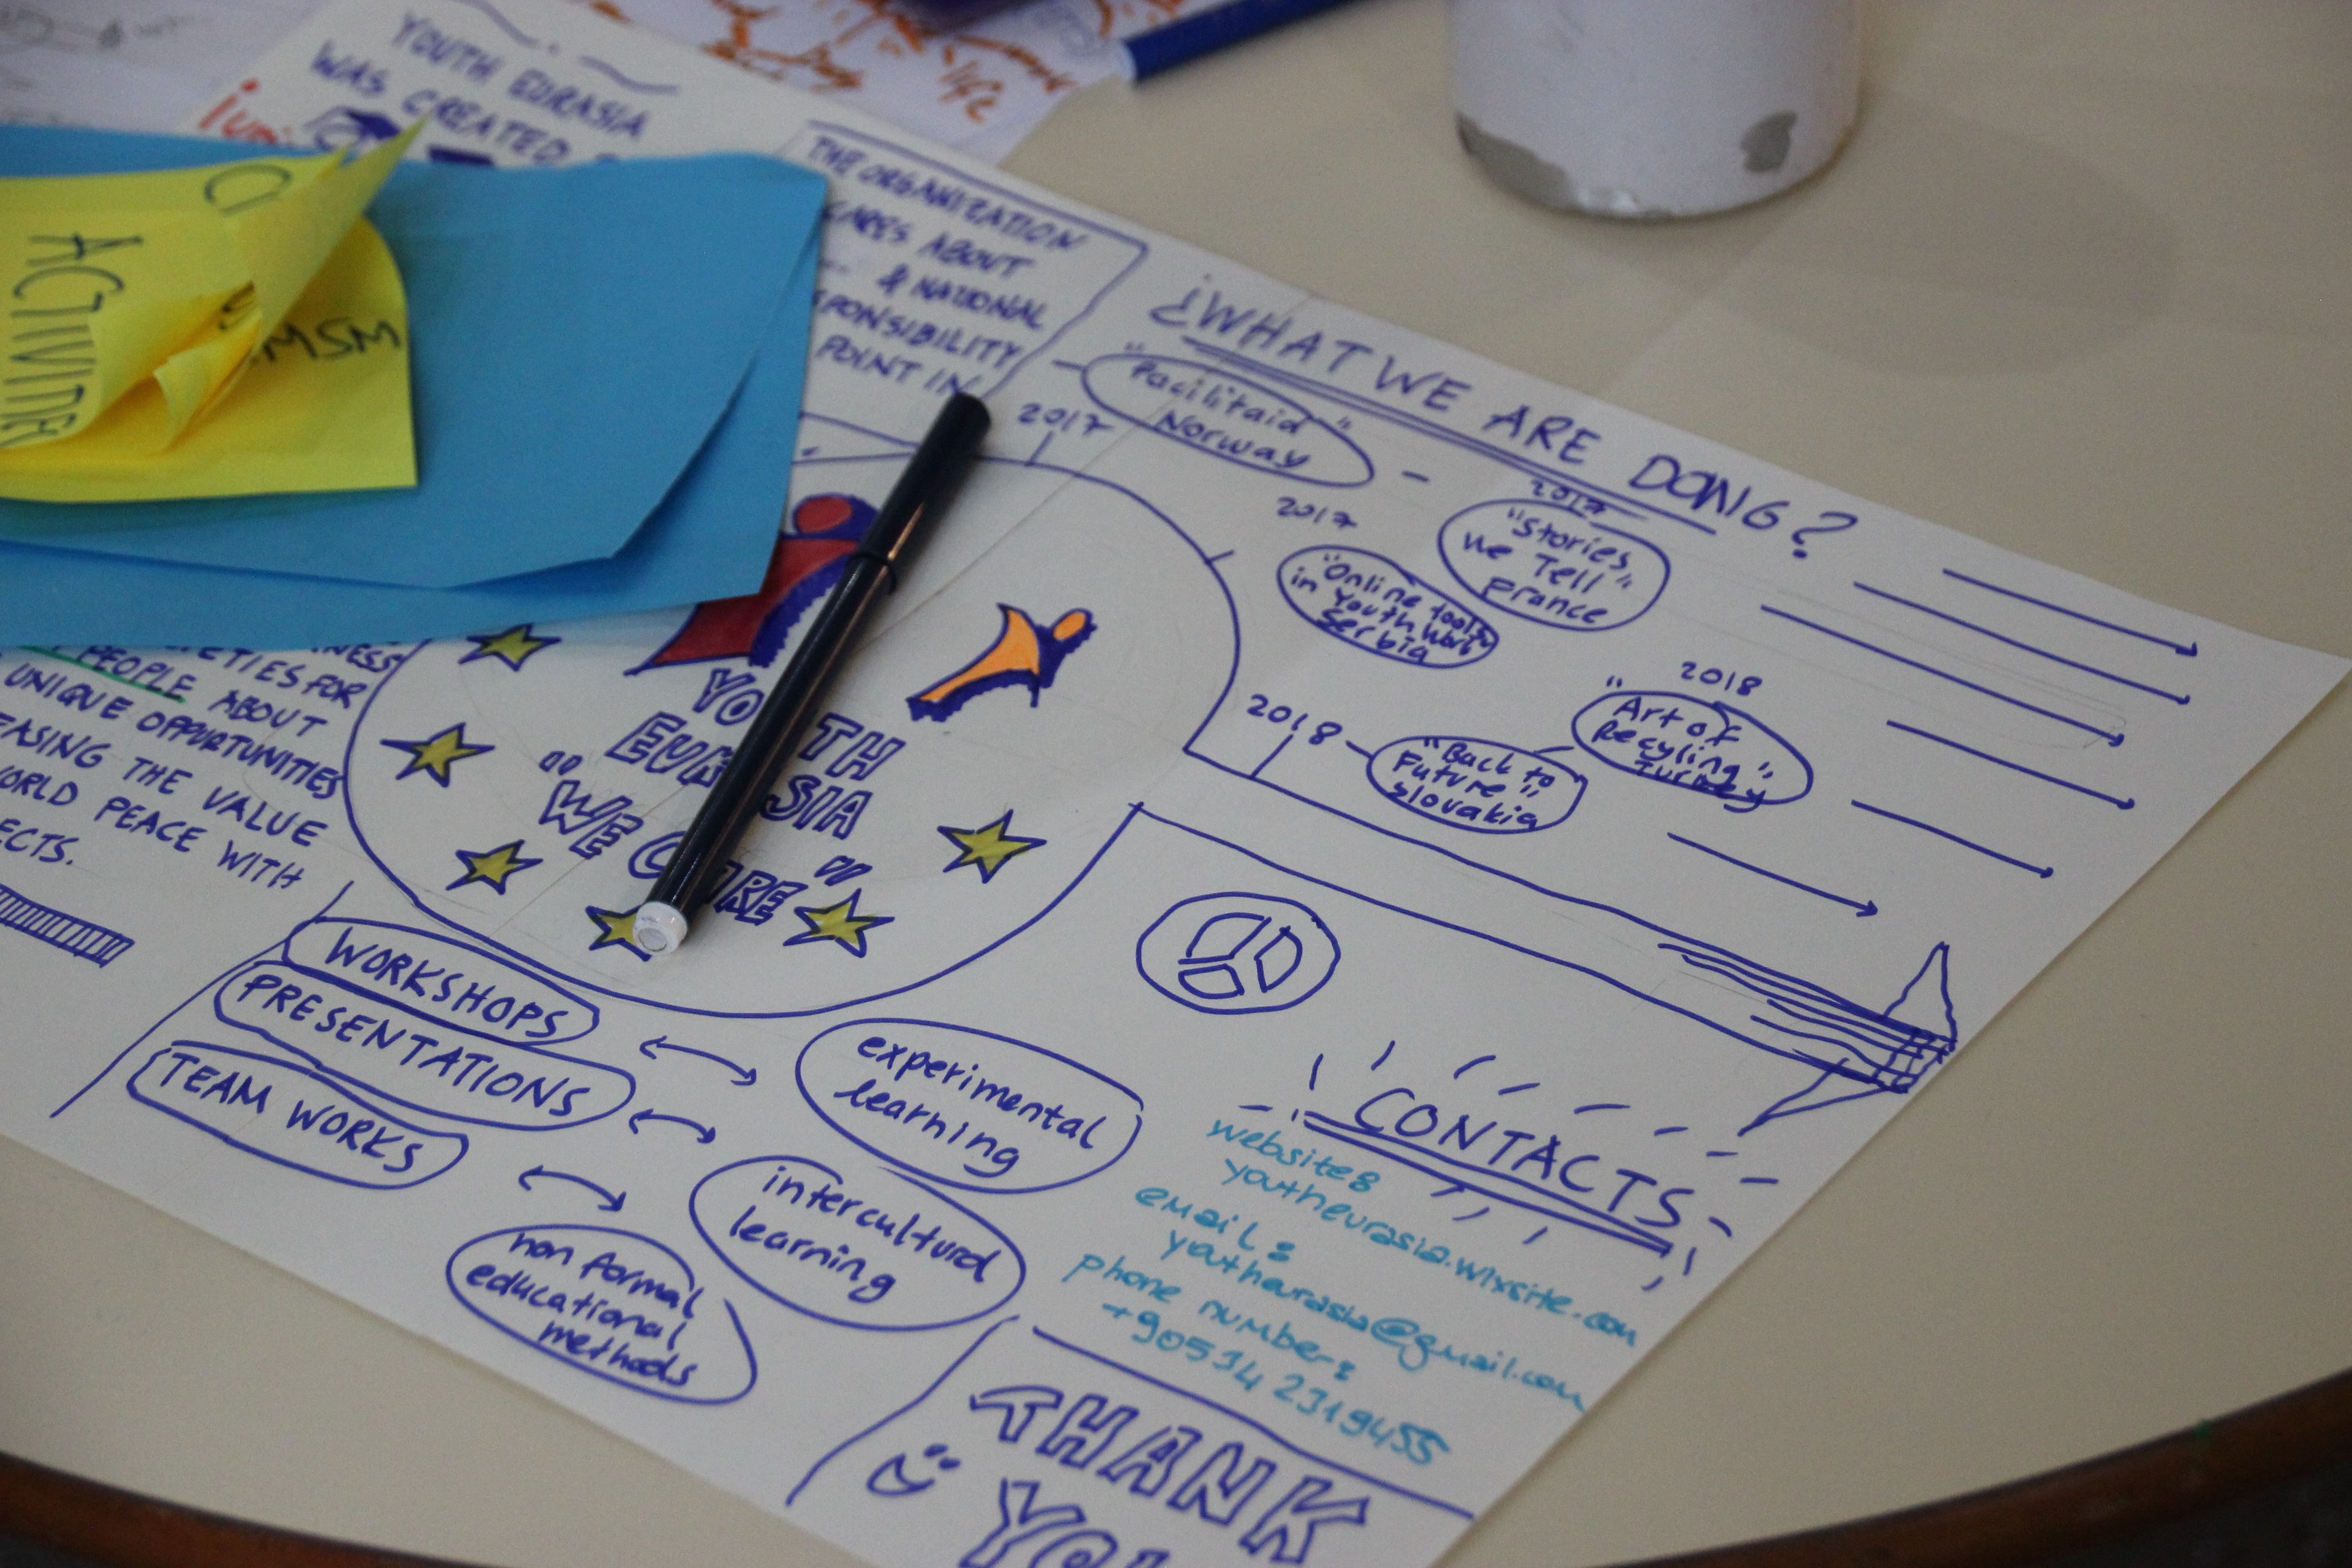 YOUTH EURASIA
WAS CREATED
life
THE ORGANIZATION
CARES ABOUT
& NATIONAL
POINT IN
ACTIVITIES
MSM
¿WHAT WE ARE DOING?
2017
"Facilitaid"
Norway
2017
"Online tools
in Youth Work"
Serbia
2017
"Stories
we Tell"
France
2018
"Back to
Future"
Slovakia
2018
"Art of
Recyling"
Turkey
PEOPLE ABOUT
UNIQUE OPPURTUNITIES
THE VALUE
WORLD PEACE WITH
YOUTH
EURASIA
"WE CARE"
WORKSHOPS
PRESENTATIONS
TEAM WORKS
experimental
learning
intercultural
learning
non formal
educational
methods
CONTACTS
website:
youtheurasia.wixsite.com
email:
youtheurasia@gmail.com
phone number:
+90534 2319455
THANK
YOU